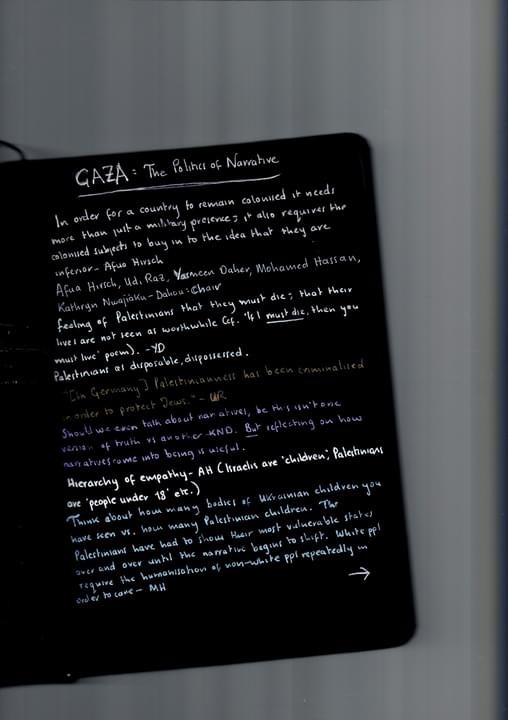 GAZA: The Politics of Narrative
In order for a country to remain colonised it needs
more than just a military presence; it also requires the
colonised subjects to buy in to the idea that they are
inferior - Afua Hirsch
Afua Hirsch, Udi Raz, Yasmeen Daher, Mohamed Hassan,
Kathryn Nwajiaku-Dahou: Chair
feeling of Palestinians that they must die; that their
lives are not seen as worthwhile (cf. 'If I must die, then you
must live' poem). -YD
Palestinians as disposable, dispossessed.
"[In Germany] Palestinianness has been criminalised
in order to protect Jews." - UR
Should we even talk about narratives, bc this isn't one
version of truth vs another -KND. But reflecting on how
narratives come into being is useful.
Hierarchy of empathy - AH (Israelis are 'children'; Palestinians
are 'people under 18' etc.)
Think about how many bodies of Ukrainian children you
have seen vs. how many Palestinian children. The
Palestinians have had to show their most vulnerable states
over and over until the narrative begins to shift. White ppl
require the humanisation of non-white ppl repeatedly in
order to care - MH
→